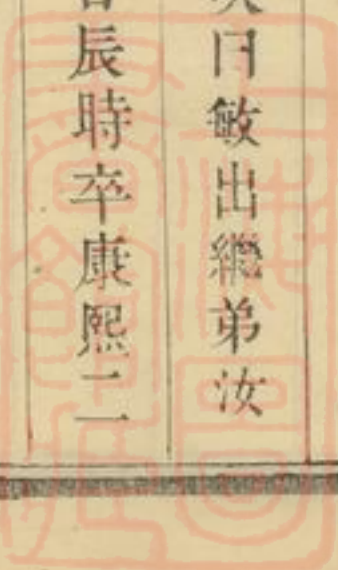 次曰敏出繼弟汝
辰時卒康熙二